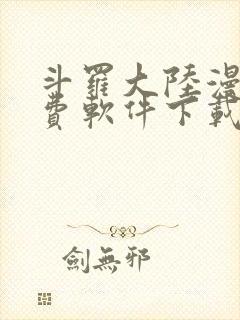 斗羅大陸漫
費軟件下載
劍無邪